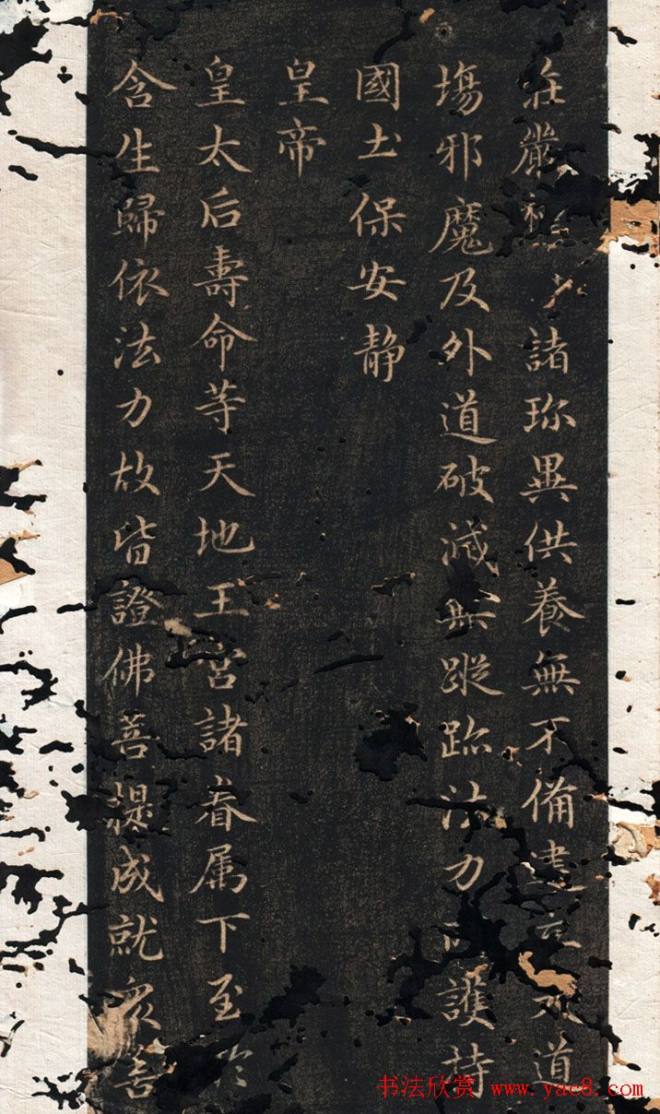 庄嚴諸珎異供養無不備道
塲邪魔及外道破滅無蹤跡法力護持
國土保安静
皇帝
皇太后壽命等天地王宮諸眷属下至於
含生歸依法力故皆證佛菩提成就衆善
书法欣赏 www.yac8.com